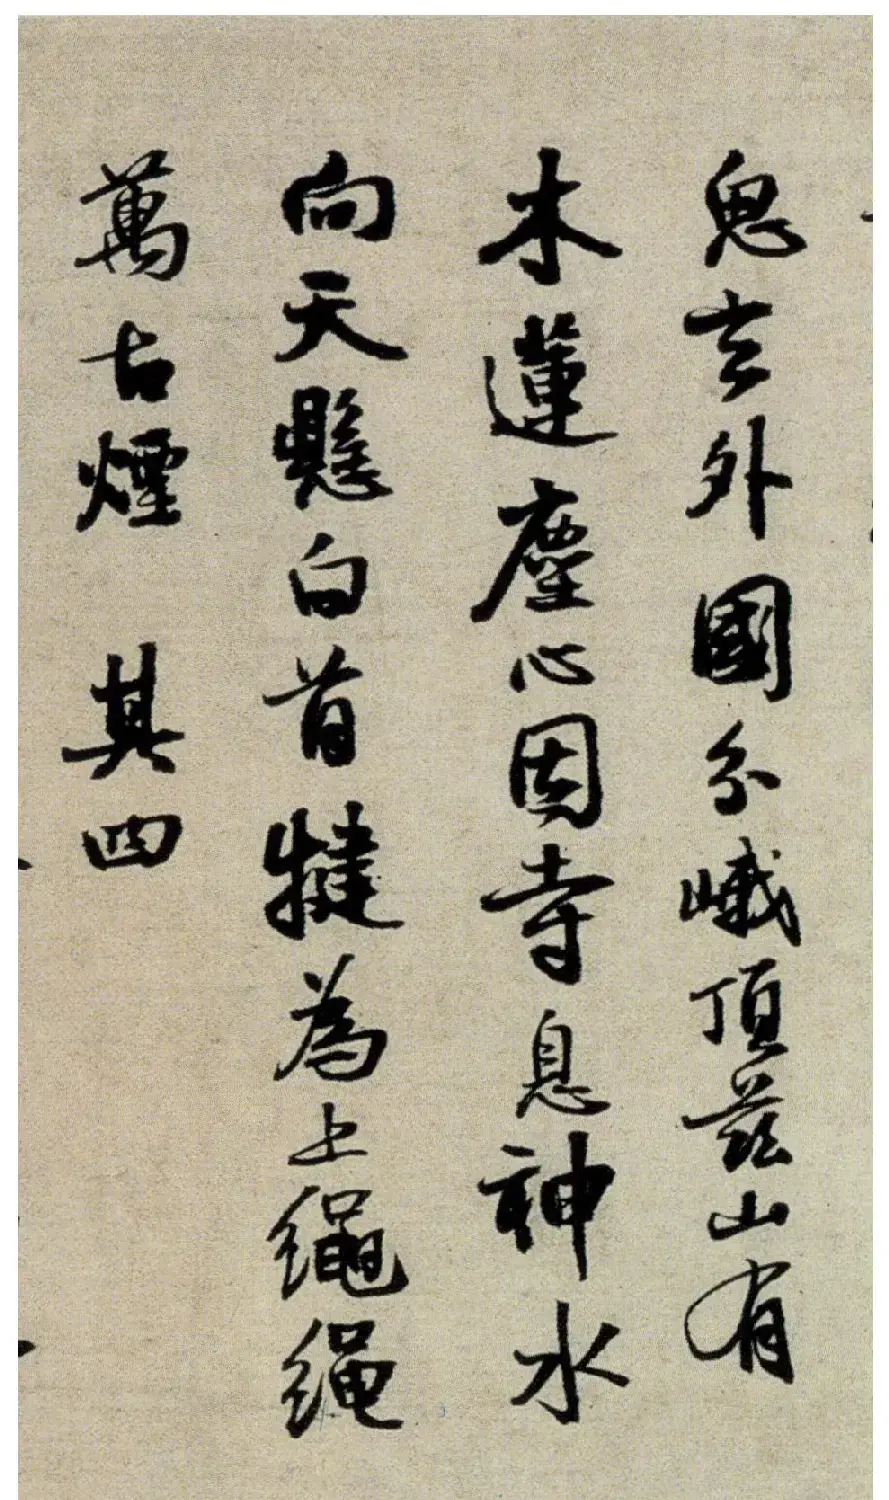 鬼玄外國分峨頂茲山有
木蓮塵心因寺息神水
向天懸白首犍為上繩繩
萬古煙 其四